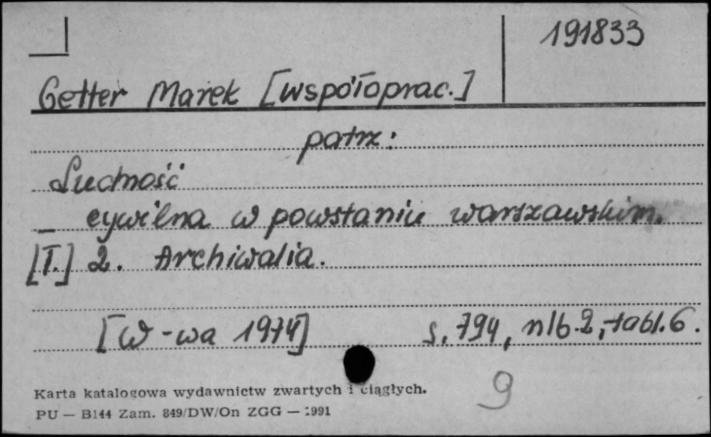 191833
Getter Marek [współoprac.]
patrz:
Ludność
cywilna w powstaniu warszawskim.
[T.] 2. Archiwalia.
[W-wa 1974] s. 794, nlb. 2, tabl. 6.
9
Karta katalogowa wydawnictw zwartych i ciągłych.
PU — B144 Zam. 849/DW/On ZGG — 1991